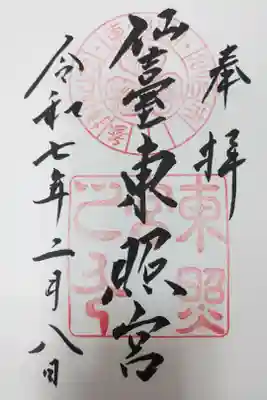 奉拝
仙臺東照宮
令和七年二月八日
東照